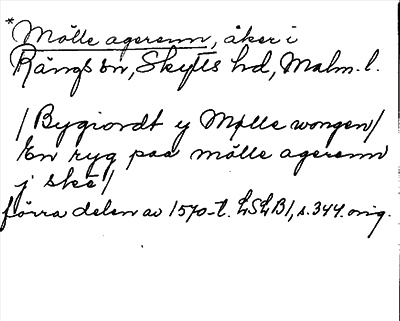 * Mölle agerenn, åker i
Rängs sn, Skytts hd, Malm. l.
/Bygiordt y Mølle wongen/
En ryg paa mölle agerenn
j ske/
förra delen av 1570-t. LSLB1, s. 344. orig.